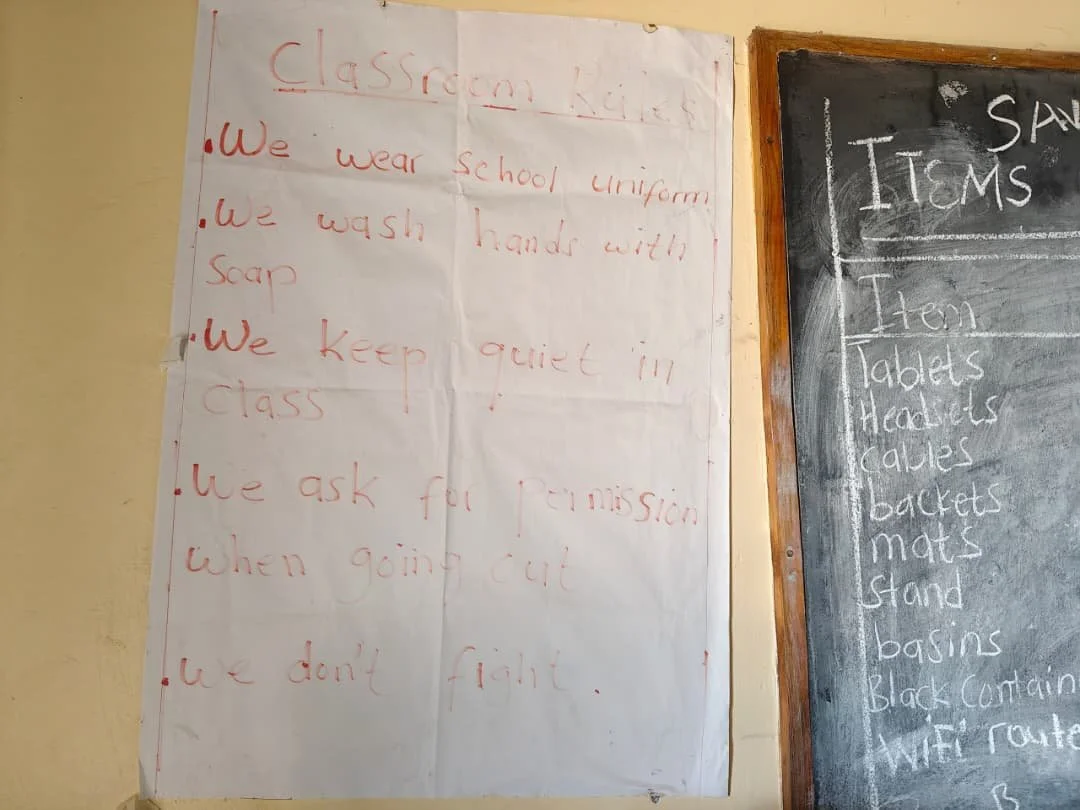 Classroom Rules
.We wear school uniform
.We wash hands with
Soap
.We keep quiet in
Class
.We ask for permission
when going out
.we don't fight.
ITEMS
Item
Tablets
Headsets
cables
backets
mats
stand
basins
Black Contain
WiFi route